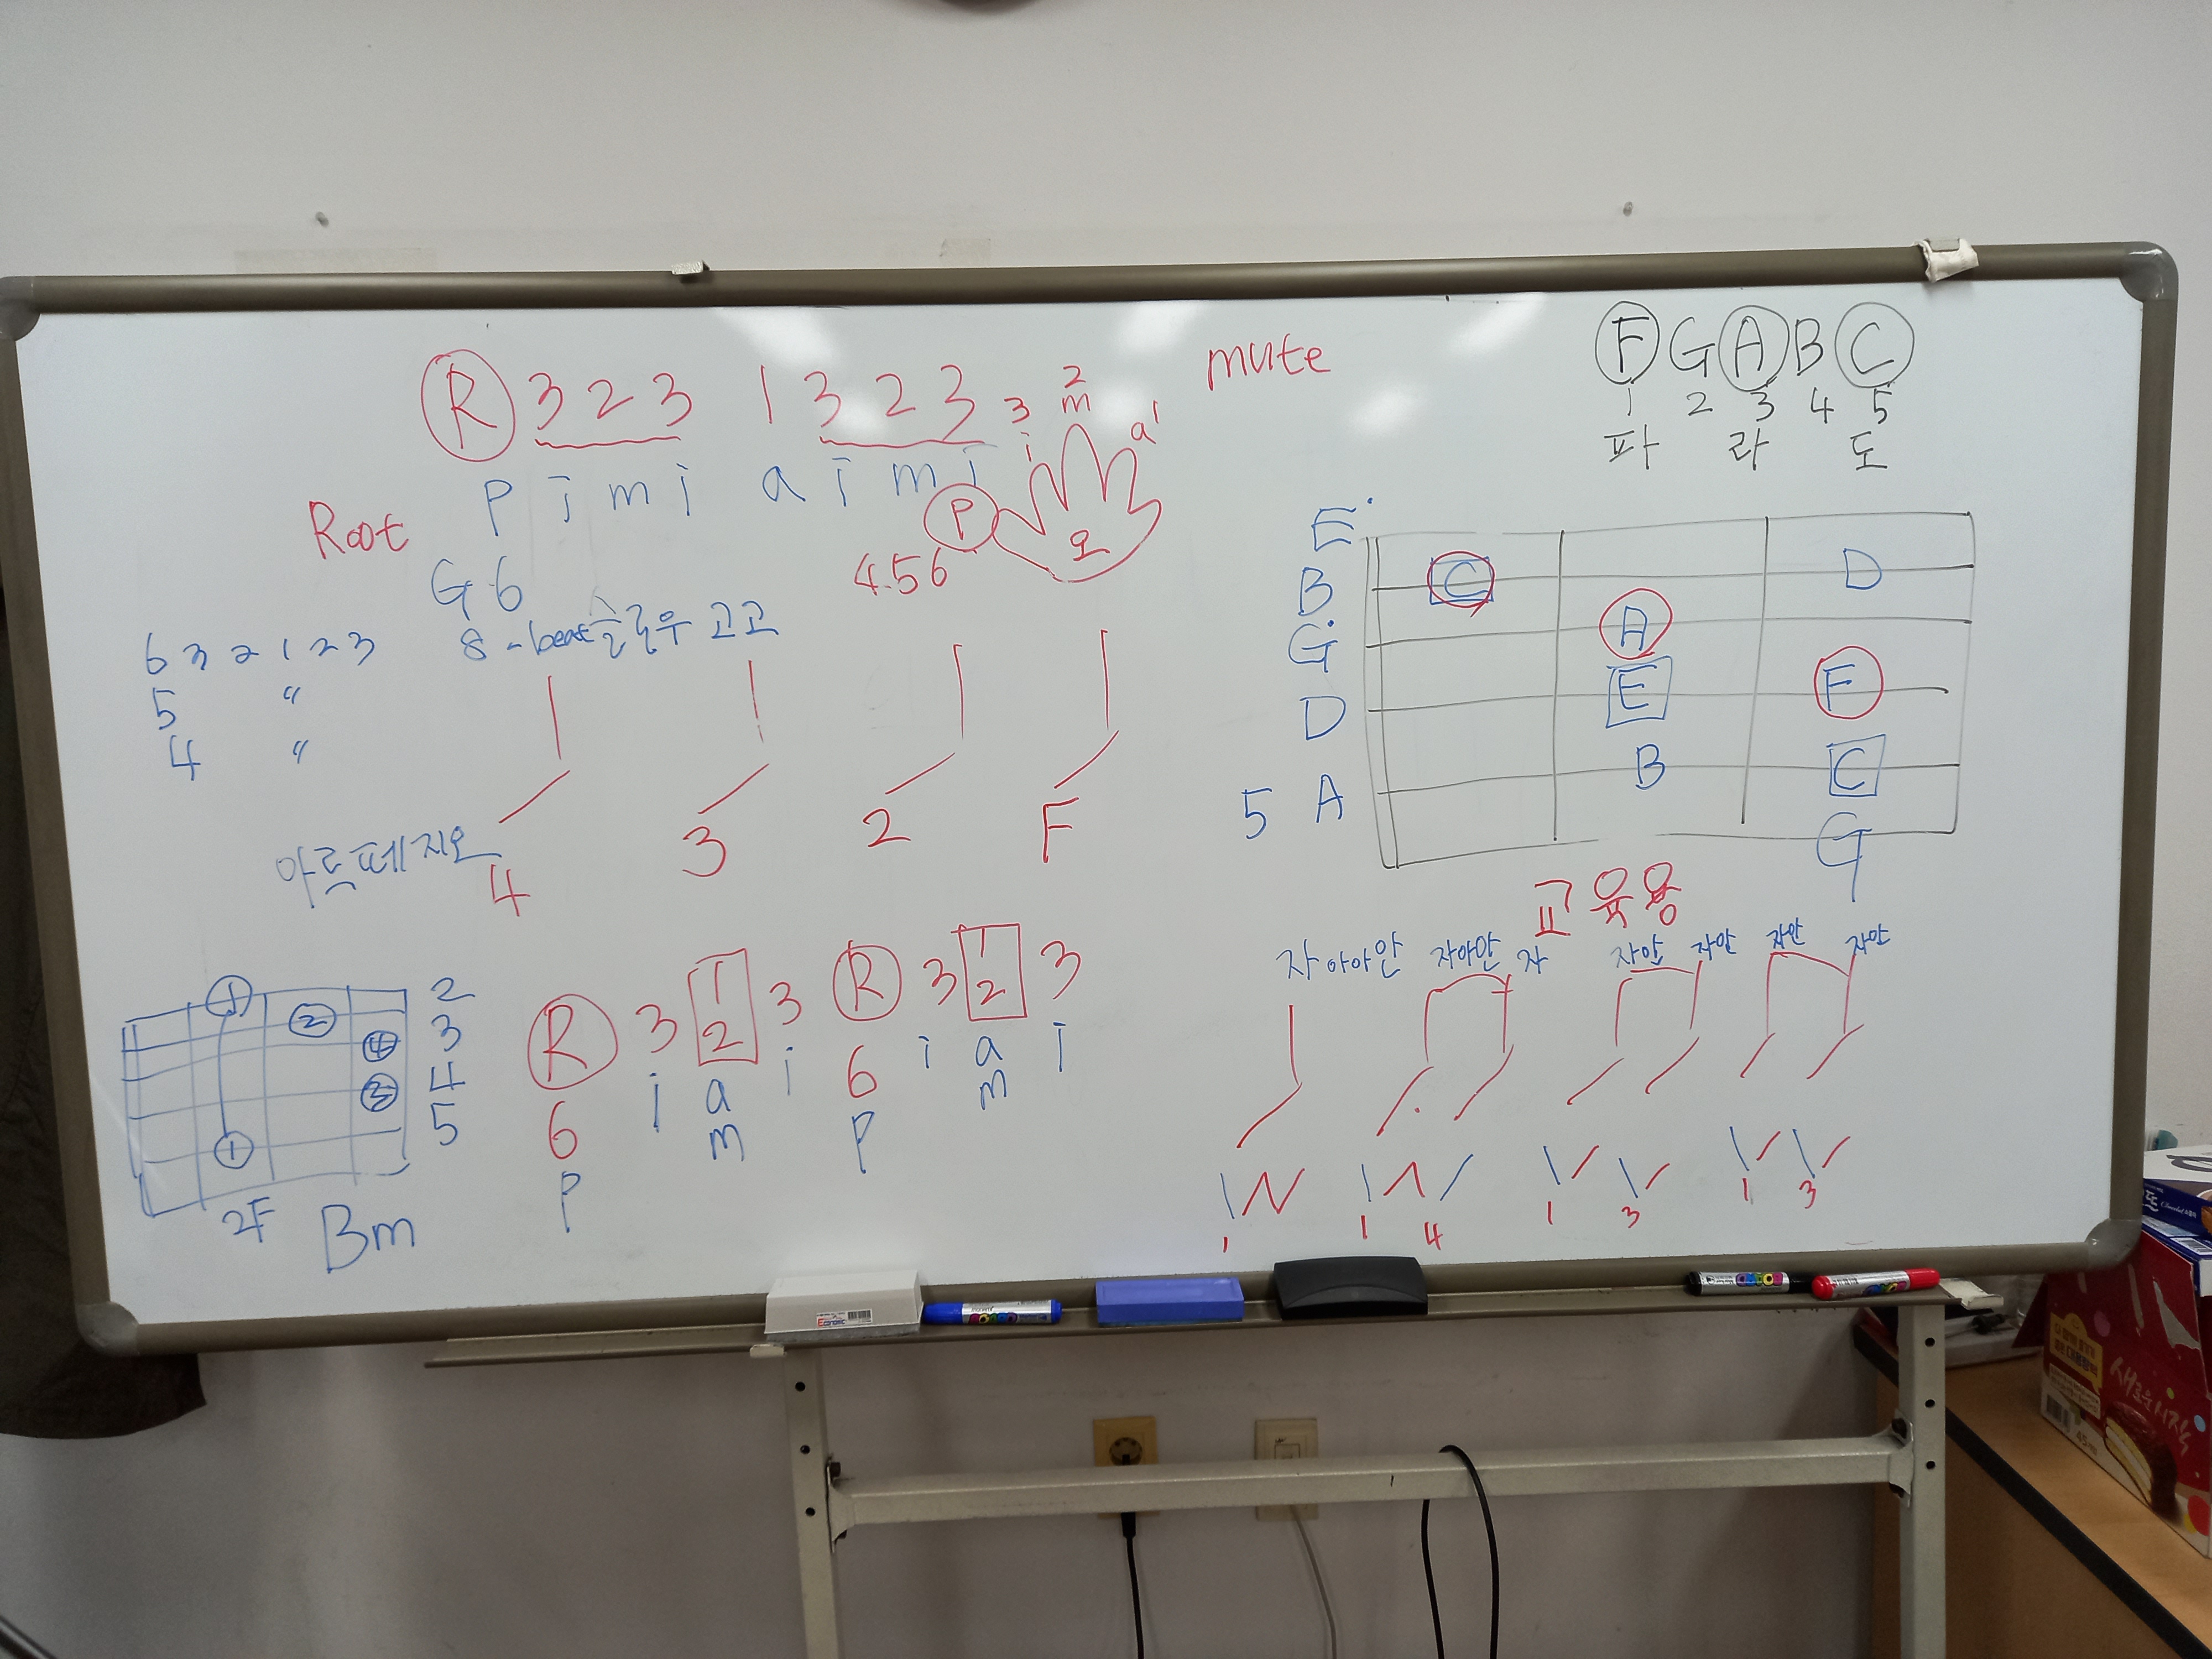 R 3 2 3 1 3 2 3
3 2
i m a 1
p i m i a i m i
P
오
4.5 6
Root
G 6
8-beat 슬로우 고고
6 3 2 1 2 3
5 〃
4 〃
아르페지오
4 3 2 F
mute
F G A B C
1 2 3 4 5
파 라 도
E
B C D
G A
D E F
5 A B C
G
교육용
자아아안 자아안 자 자안 자안 자안 자안
1 1 4 1 3 1 3
1 2 4 3 1
2
3
4
5
2F Bm
R 3 1 3 R 3 1 3
2 2
6 i a i 6 i a i
m m
P P
새로운 시작